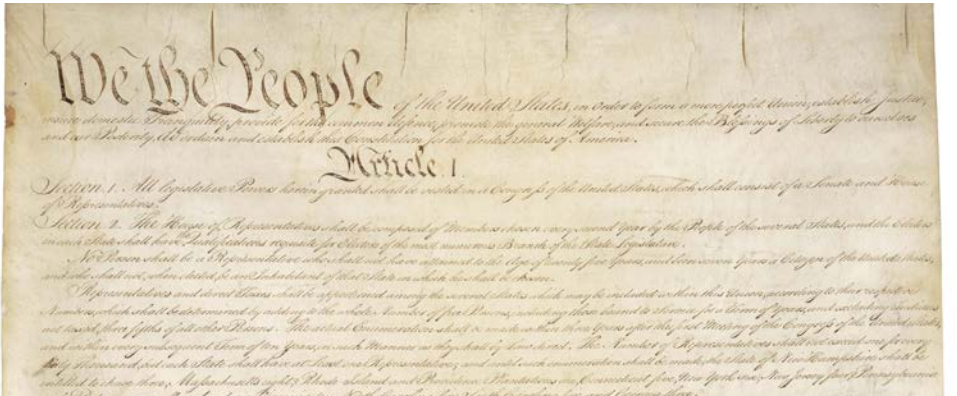 We the People of the United States, in Order to form a more perfect Union, establish Justice,
insure domestic Tranquility, provide for the common defence, promote the general Welfare, and secure the Blessings of Liberty to ourselves
and our Posterity, do ordain and establish this Constitution for the United States of America.
Article. I.
Section. 1. All legislative Powers herein granted shall be vested in a Congress of the United States, which shall consist of a Senate and House
of Representatives.
Section. 2. The House of Representatives shall be composed of Members chosen every second Year by the People of the several States, and the Electors
in each State shall have Qualifications requisite for Electors of the most numerous Branch of the State Legislature.
No Person shall be a Representative who shall not have attained to the Age of twenty five Years, and been seven Years a Citizen of the United States,
and who shall not, when elected, be an Inhabitant of that State in which he shall be chosen.
Representatives and direct Taxes shall be apportioned among the several States which may be included within this Union, according to their respective
Numbers, which shall be determined by adding to the whole Number of free Persons, including those bound to Service for a Term of Years, and excluding Indians
not taxed, three fifths of all other Persons. The actual Enumeration shall be made within three Years after the first Meeting of the Congress of the United States,
and within every subsequent Term of ten Years, in such Manner as they shall by Law direct. The Number of Representatives shall not exceed one for every
thirty Thousand, but each State shall have at Least one Representative; and until such enumeration shall be made, the State of New Hampshire shall be
entitled to chuse three, Massachusetts eight, Rhode Island and Providence Plantations one, Connecticut five, New York six, New Jersey four, Pennsylvania